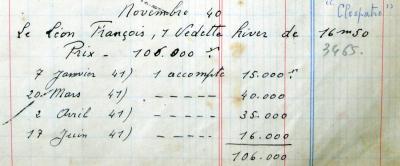 Novembre 40
"Cleopatre"
Le Léon François, 1 Vedette hiver de 16m50
Prix - 106.000 3465.
7 Janvier 41) 1 accompte 15.000
20 Mars 41) - - - - - 40.000
2 Avril 41) - - - - - 35.000
17 Juin 41) - - - - - 16.000
106.000